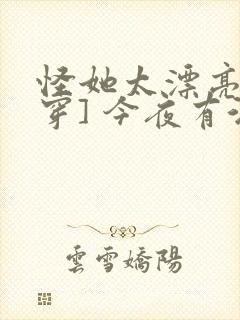 怪她太漂亮
穿] 今夜有
雲雪嬌陽